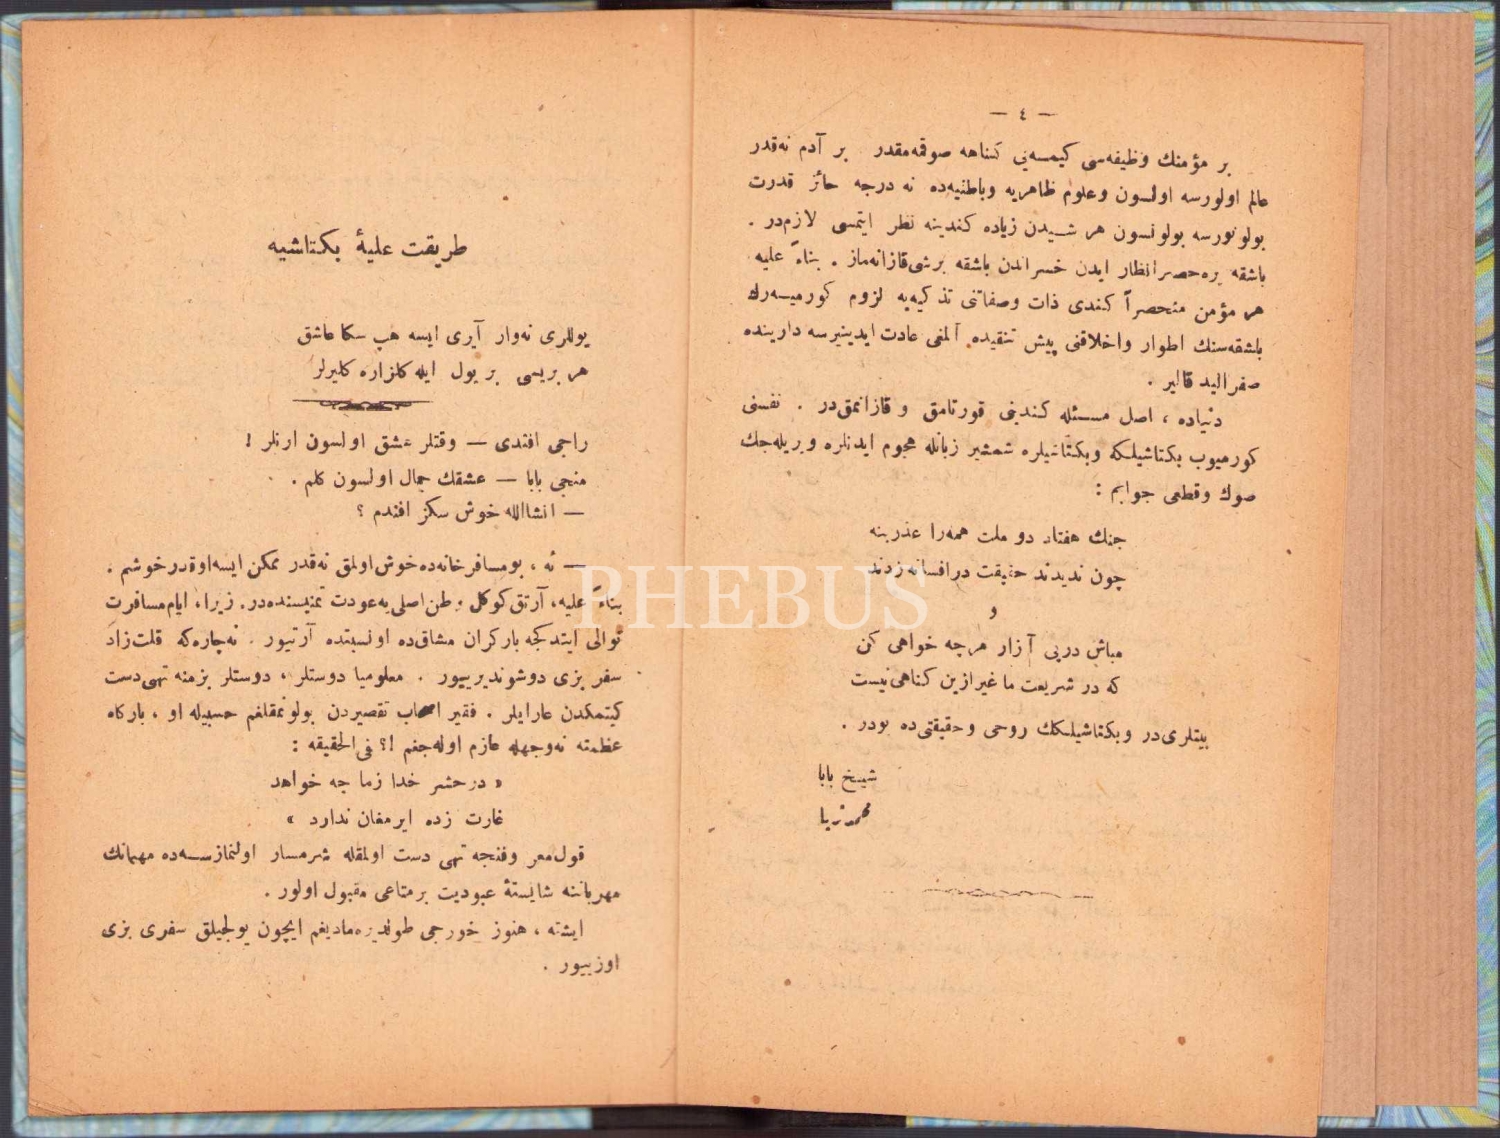 — ٤ —
بر مؤمنك وظيفه‌سى كيمسه‌يى كناهه صوقمه‌مقدر بر آدم نه‌قدر
عالم اولورسه اولسون وعلوم ظاهريه وباطنيه‌ده نه درجه حائز قدرت
بولونورسه بولونسون هر شيدن زياده كندينه نظر ايتمسى لازم‌در .
باشقه يره حصر انظار ايدن خسراندن باشقه برشى قازانه‌ماز . بناءً عليه
هر مؤمن منحصراً كندى ذات وصفاتنى تذكيه‌يه لزوم كورميه‌رك
باشقه‌سنك اطوار واخلاقنى پيش تنقيده آلمغى عادت ايدينيرسه دارينده
صفراليد قالير .
دنياده ، اصل مسئله كندينى قورتامق و قازانمق‌در . نفسنى
كورميوب بكتاشيلكه وبكتاشيلره شمشير زبانله هجوم ايدنلره ويريله‌جك
صوك وقطعى جوابم :
جنك هفتاد دو ملت همه‌را عذر بنه
چون نديدند حقيقت در افسانه زدند
و
مباش درپى آزار هرچه خواهى كن
كه در شريعت ما غير ازين كناهى نيست
بيتلرى‌در وبكتاشيلكك روحى وحقيقتى‌ده بودر .
شيخ بابا
محمد ثريا
طريقت عليهٔ بكتاشيه
يوللرى نه‌وار آيرى ايسه هپ سكا عاشق
هر بريسى بر يول ايله كلزاره كليرلر
راجى افندى — وقتلر عشق اولسون ارنلر !
منجى بابا — عشقك جمال اولسون كلم .
— انشاالله خوش سكز افندم ؟
— نه ، بو مسافرخانه‌ده خوش اولمق نه‌قدر ممكن ايسه اوقدر خوشم .
بناءً عليه ، آرتق كوكل وطن اصلى‌يه عودت تمنيسنده‌در. زيرا، ايام مسافرت
توالى ايتدكجه باركران مشاق‌ده اونسبتده آرتيور . نه‌چاره‌كه قلت‌زاد
سفر بزى دوشونديرييور . معلوميا دوستلر ، دوستلر بزمنه تهى‌دست
كيتمكدن عارايلر . فقير اصحاب تقصيردن بولونمقلغم حسبيله او ، باركاه
عظمته نه‌وجهله عازم اوله‌جغم !؟ فى‌الحقيقه :
« درحشر خدا زما چه خواهد
غارت زده ايرمغان ندارد »
قول‌معر وفنجه تهى دست اولمقله شرمسار اولنمازسه‌ده مهمانك
مهرباننه شايستهٔ عبوديت برمتاعى مقبول اولور .
ايشته ، هنوز خورجى طولديره‌ماديغم ايچون يولجيلق سفرى بزى
اوزييور .
PHEBUS